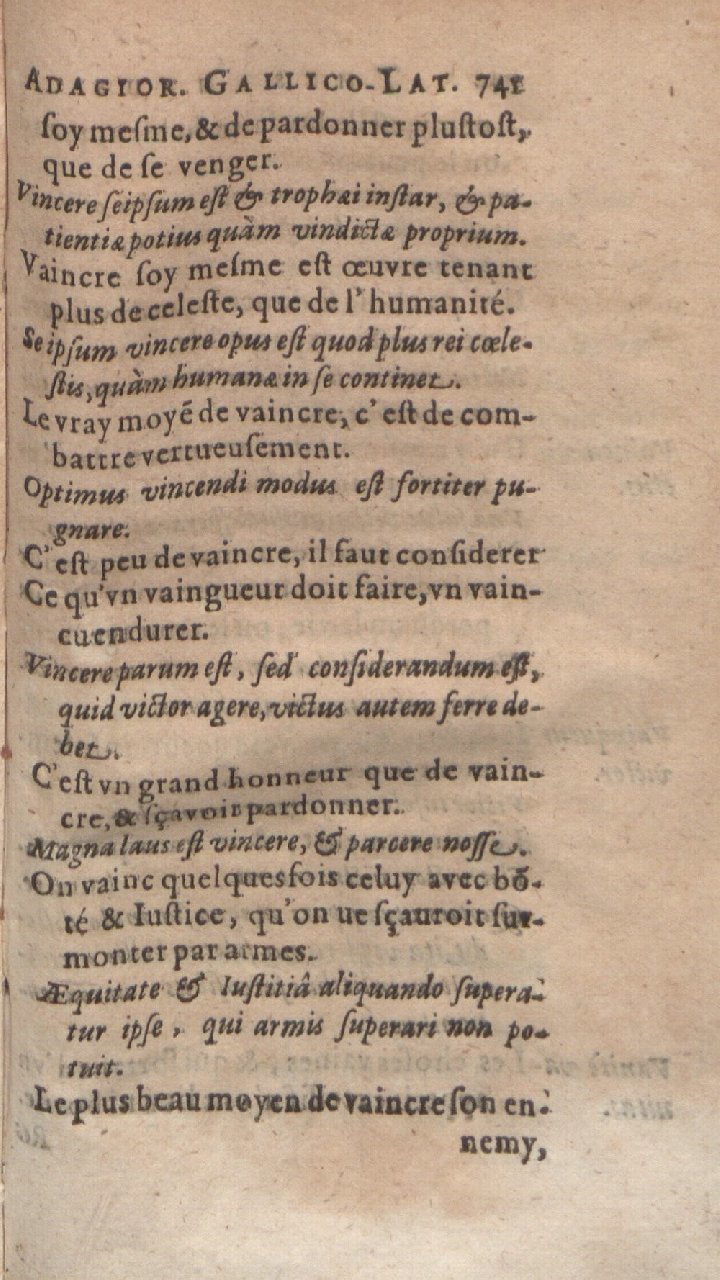 ADAGIOR. GALLICO-LAT. 741
ſoy meſme, & de pardonner pluſtoſt,
que de ſe venger.
Vincere ſeipſum eſt & trophæi inſtar, & pa-
tientiæ potius quàm vindictæ proprium.
Vaincre ſoy meſme est œuvre tenant
plus de celeſte, que de l'humanité.
Seipſum vincere opus eſt quod plus rei cœle-
ſtis, quàm humanæ in ſe continet.
Le vray moyē de vaincre, c'eſt de com-
battre vertueuſement.
Optimus vincendi modus eſt fortiter pu-
gnare.
C'eſt peu de vaincre, il faut conſiderer
Ce qu'vn vaingueur doit faire, vn vain-
cu endurer.
Vincere parum eſt, ſed conſiderandum eſt,
quid victor agere, victus autem ferre de-
bet.
C'eſt vn grand honneur que de vain-
cre, & ſçavoir pardonner.
Magna laus eſt vincere, & parcere noſſe.
On vainc quelquesfois celuy avec bō-
té & Iuſtice, qu'on ne ſçauroit ſur-
monter par armes.
Æquitate & Iuſtitiâ aliquando ſupera-
tur ipſe, qui armis ſuperari non po-
tuit.
Le plus beau moyen de vaincre ſon en-
nemy,